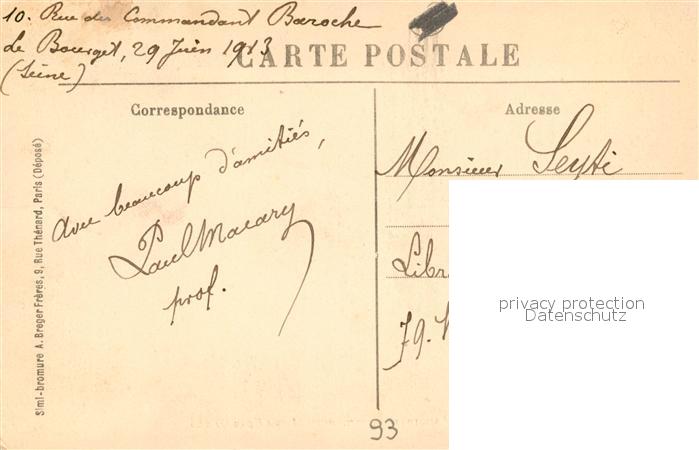 10. Rue du Commandant Baroche
Le Bourget, 29 Juin 1913
(Seine)
CARTE POSTALE
Correspondance
Adresse
avec beaucoup d'amitiés,
Paul Macary
prof.
Monsieur
Libr
79.
privacy protection
Datenschutz
Simi-bromure A. Breger Frères, 9, Rue Thénard, Paris (Déposé)
93